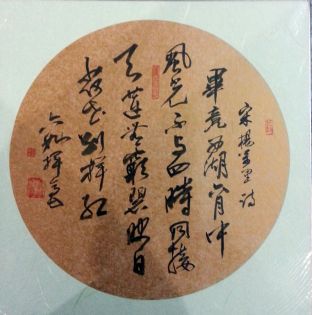 宋楊萬里詩
畢竟西湖六月中
風光不与四時同接
天蓮葉窮碧映日
荷花别样红